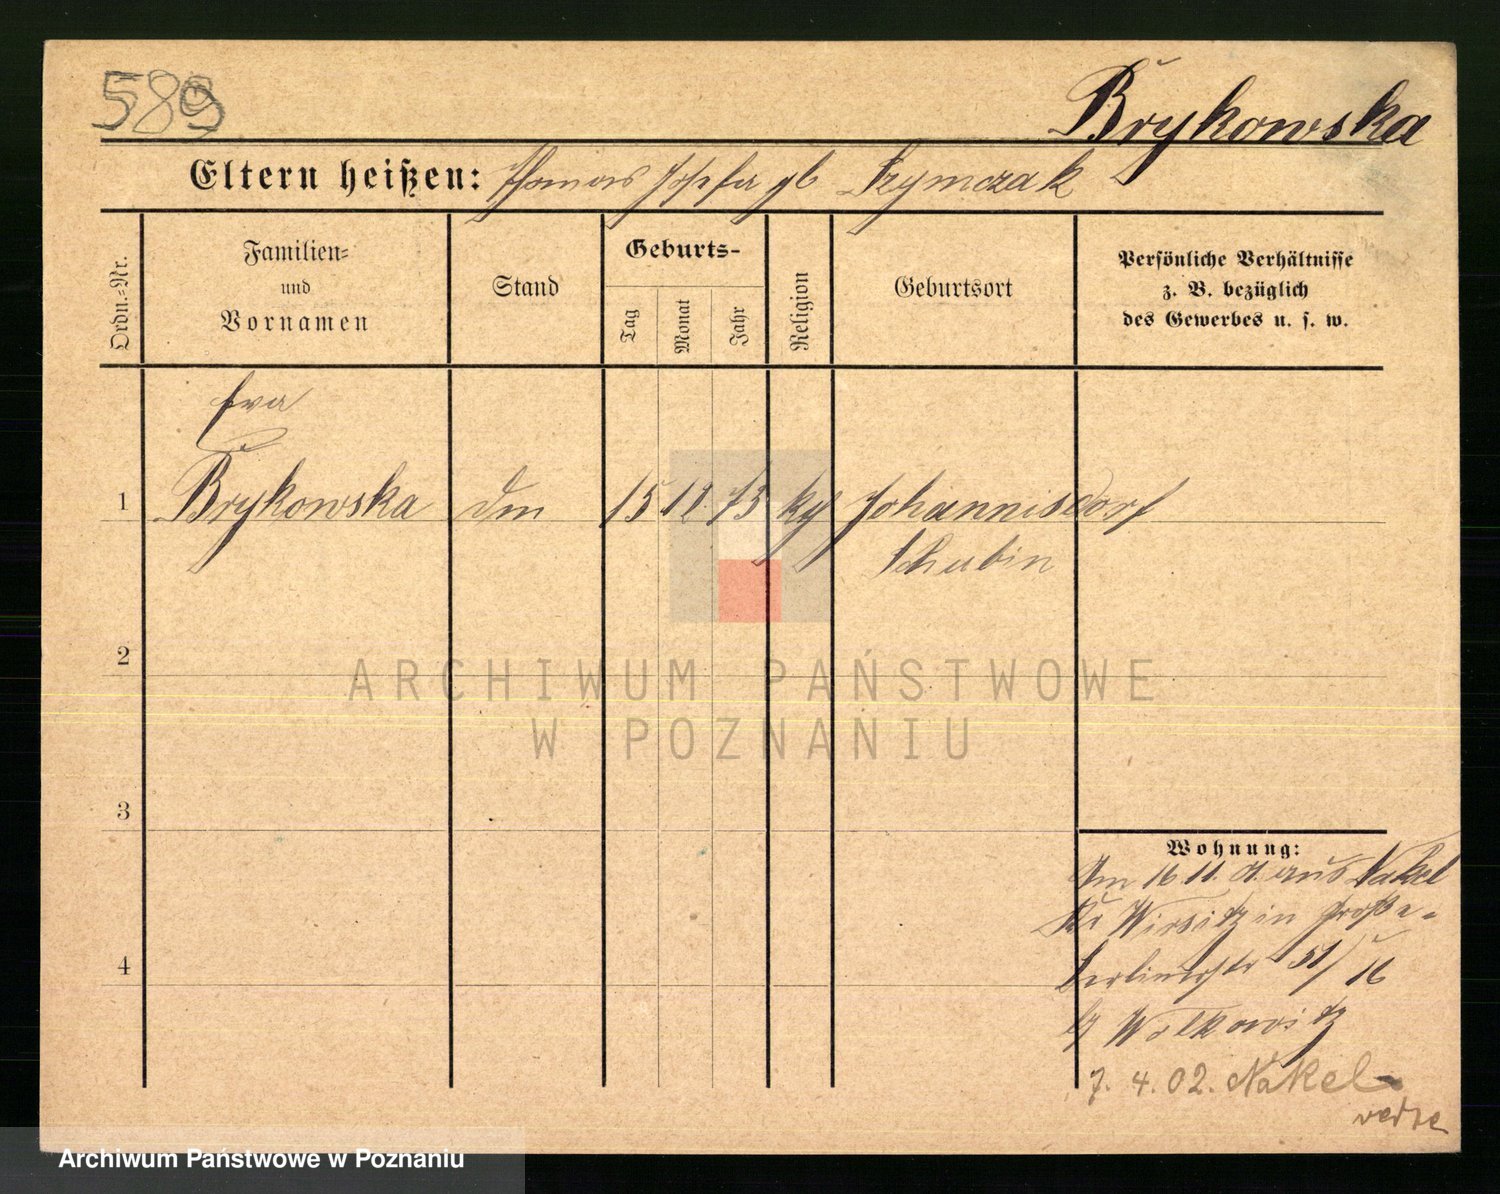 589
Brykowska
Eltern heißen: Thomas Josefa gb Szymczak
Ordn.-Nr.
Familien-
und
Vornamen
Stand
Geburts-
Tag
Monat
Jahr
Religion
Geburtsort
Persönliche Verhältnisse
z. B. bezüglich
des Gewerbes u. s. w.
Eva
1 Brykowska 15 12. 73 Johannisdorf
Schubin
2
ARCHIWUM PAŃSTWOWE
W POZNANIU
3
4
Wohnung:
Am 16 11. 01. aus Nakel
Kr Wirsitz in Große-
Berlinerstr 51/16
b/ Wolkowitz
7. 4. 02. Nakel
Archiwum Państwowe w Poznaniu